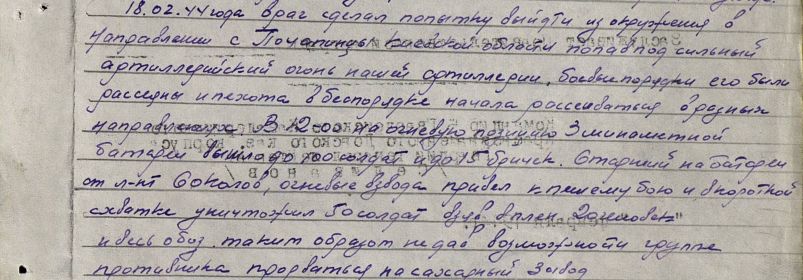 18.02.44 года враг сделал попытку выйти из окружения в
направлении с Почапинцы Киевской области попав под сильный
артиллерийский огонь нашей артиллерии, боевые порядки его были
рассеяны и пехота в беспорядке начала рассеиваться в разных
направлениях. В 2.00 на огневую позицию 3 минометной
батареи вышла до 100 солдат и до 15 бричек. Старший на батареи
ст л-нт Соколов, огневые взвода привел к пешему бою и в короткой
схватке уничтожил 50 солдат взяв в плен 20 человек
и весь обоз таким образом не дав возможности группе
противника прорваться на сахарный завод